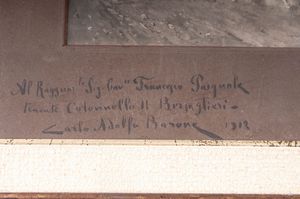 Al Raggua. Sig. Cav. Francesco Pasquale
tenente Colonnello di Bersaglieri -
Carlo Adolfo Barone 1913